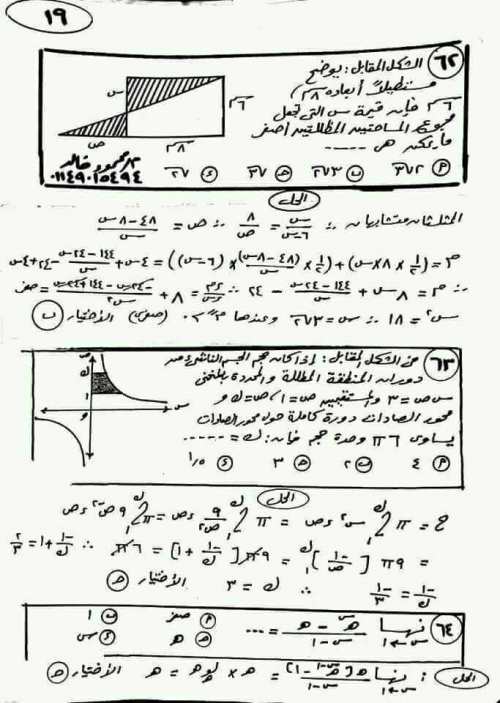 ١٩
٦٢ الشكل المقابل: يوضح
مستطيلاً أبعاده ٨ سم،
٦ سم فإن قيمة س التى تجعل
مجموع المساحتين المظللتين أصغر
ما يمكن هى -----
س
٦ سم
ص
٨ سم
م/محمود خالد
٠١١٤٩٠١٥٤٩٤
الحل
المثلثان متشابهان ∴ س/(٦-س) = ٨/ص ∴ ص = (٤٨-٨س)/س
م = (١/٢ × ٨ × س) + (١/٢) × ((٤٨-٨س)/س) × (٦-س) = ٤س + (١٤٤-٢٤س)/س - ٢٤ + ٤س
∴ م = ٨س + (١٤٤-٢٤س)/س - ٢٤
س٢ = ١٨ ∴ س = ٣√٢ وعندها م// > ٠ (صغرى) الأختيار ب
٦٣ من الشكل المقابل: إذا كان حجم الجسم الناشئ من
دوران المنطقة المظللة والمحددة بالمنحنى
س ص = ٣ والمستقيمين ص = ١، ص = ك و
محور الصادات دورة كاملة حول محور الصادات
يساوى ٦π وحدة حجم فإن: ك = ------
أ ٤ ب ٢ ج ٣ د ١٫٥
ص
ك
١
س
و
الحل
ح = π ∫١ك س٢ ءص = π ∫١ك ٩/ص٢ ءص = π ∫١ك ٩ص-٢ ءص
= ٩π [-١/ص]١ك = ٩π [-١/ك + ١] = ٦π ∴ -١/ك + ١ = ٢/٣
-١/ك = -١/٣ ∴ ك = ٣ الأختيار ج
٦٤ نهــا س←١ (هـس - هـ)/(س - ١) = ---
أ صفر ب ١
ج هـ د س
الحل : نهــا س←١ هـ[هـس-١ - ١]/(س-١) = هـ × لو هـ هـ = هـ الأختيار ج